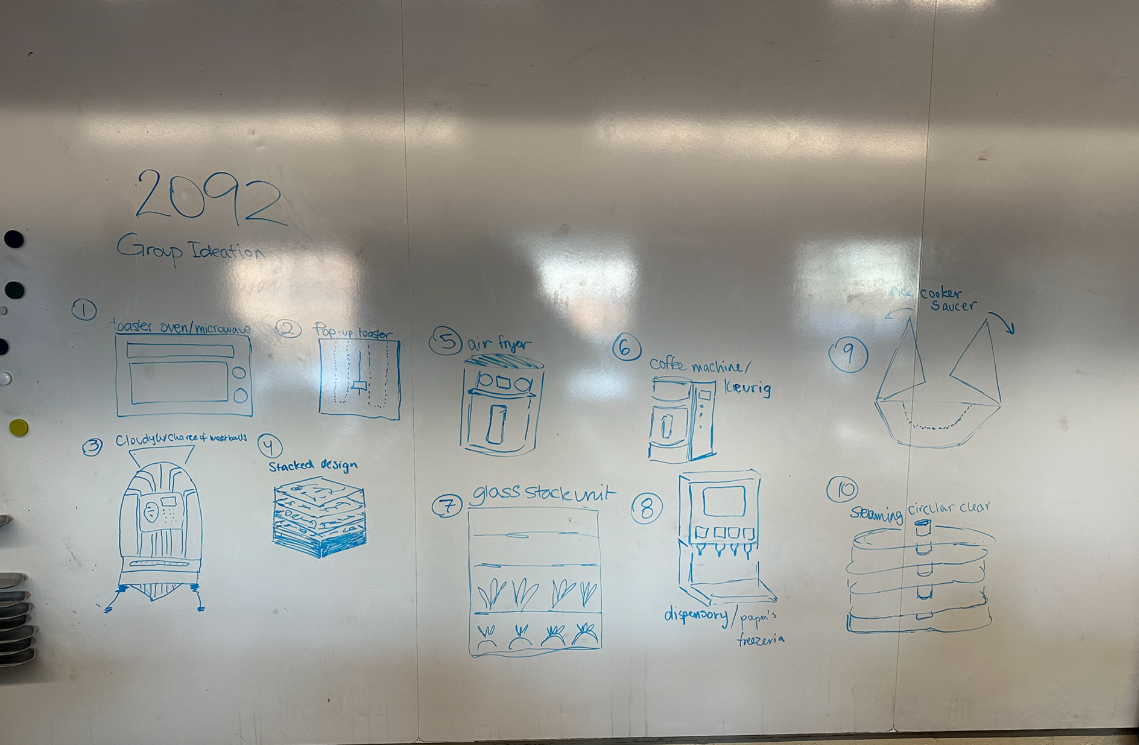 2092
Group Ideation
1
toaster oven/microwave
2
Pop-up toaster
3
Cloudy w/ chance of meatballs
4
Stacked design
5
air fryer
6
coffee machine/
keurig
7
glass stack unit
8
dispensory/papa's
freezeria
9
cooker
saucer
10
circular clear